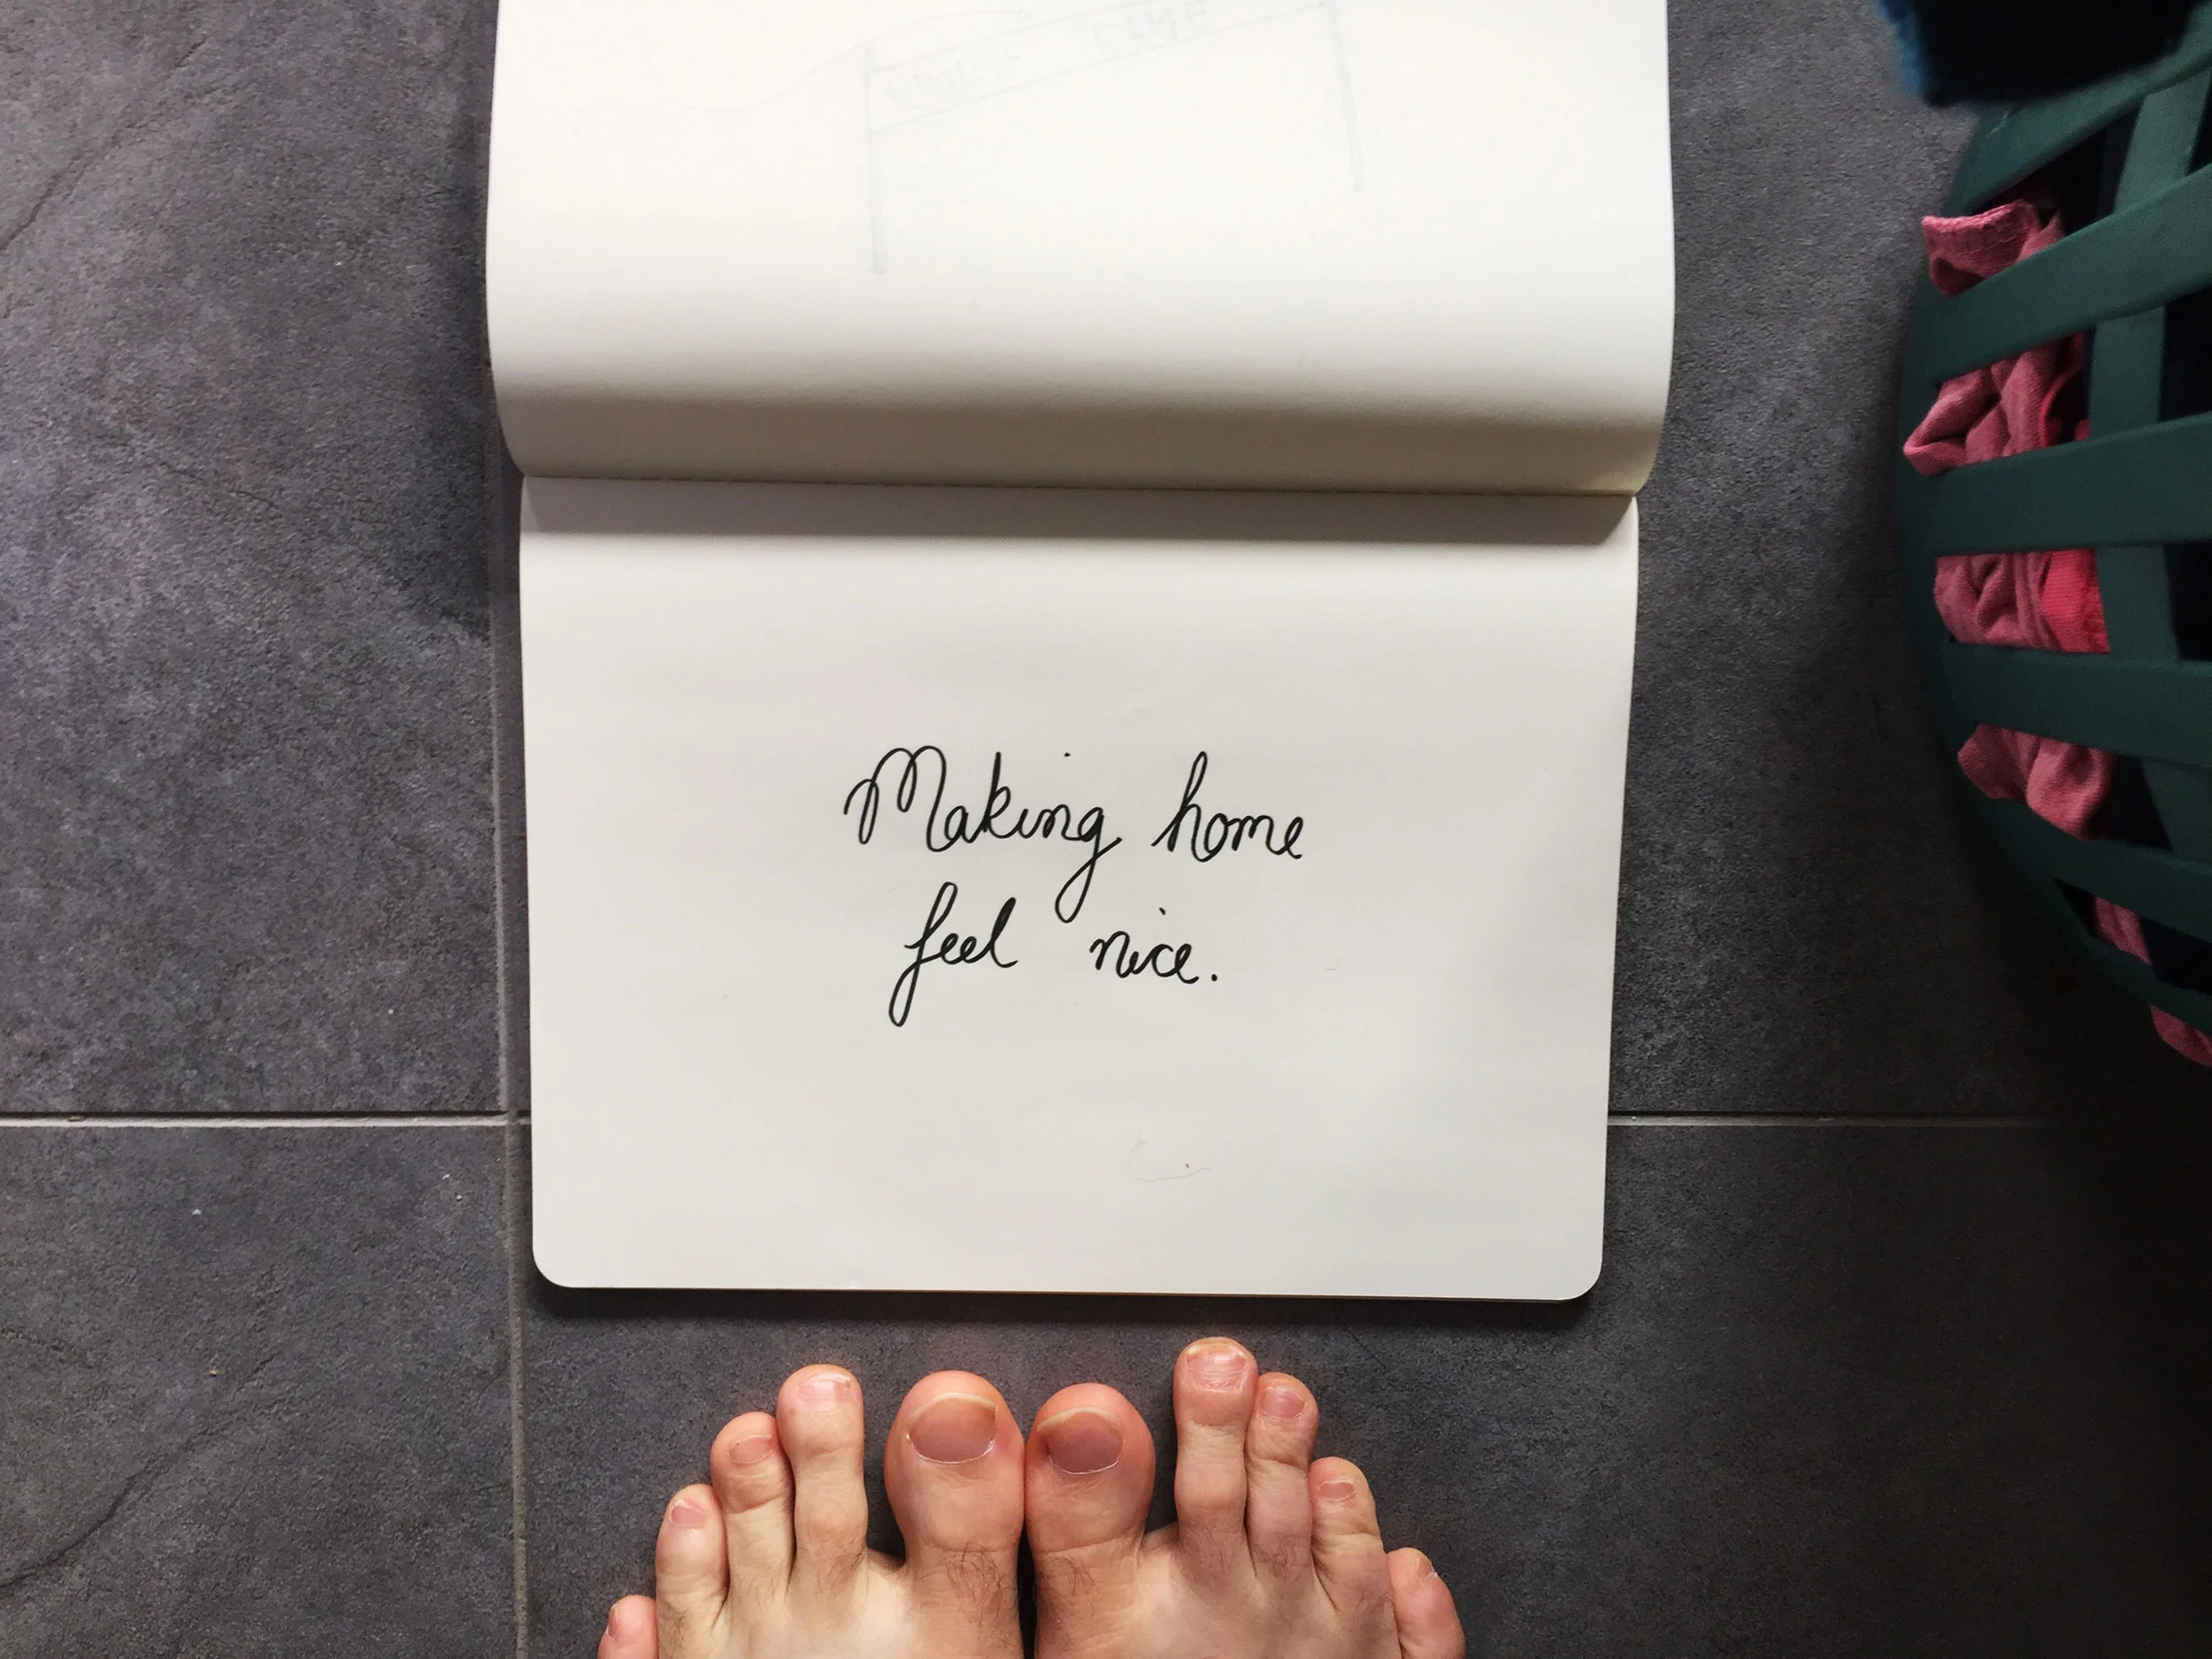 Making home
feel nice.